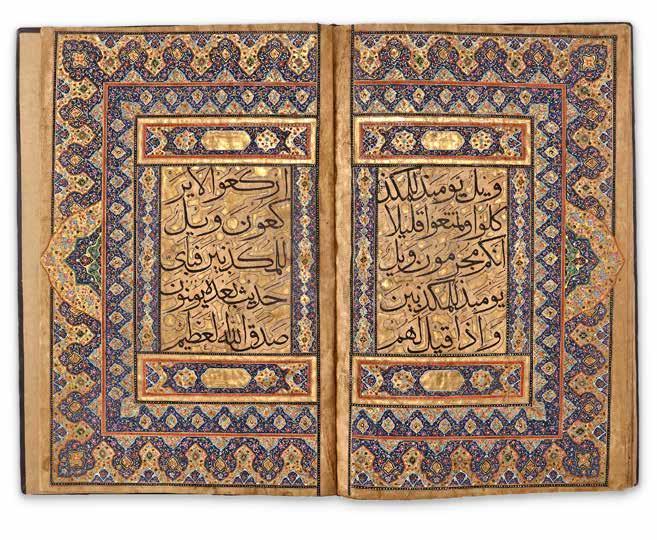 ويل يومئذ للمكذ
كلوا وتمتعوا قليلا
انكم مجرمون ويل
يومئذ للمكذبين
واذا قيل لهم
اركعوا لا ير
كعون ويل
للمكذبين فباي
حديث بعده يومنون
صدق الله العظيم